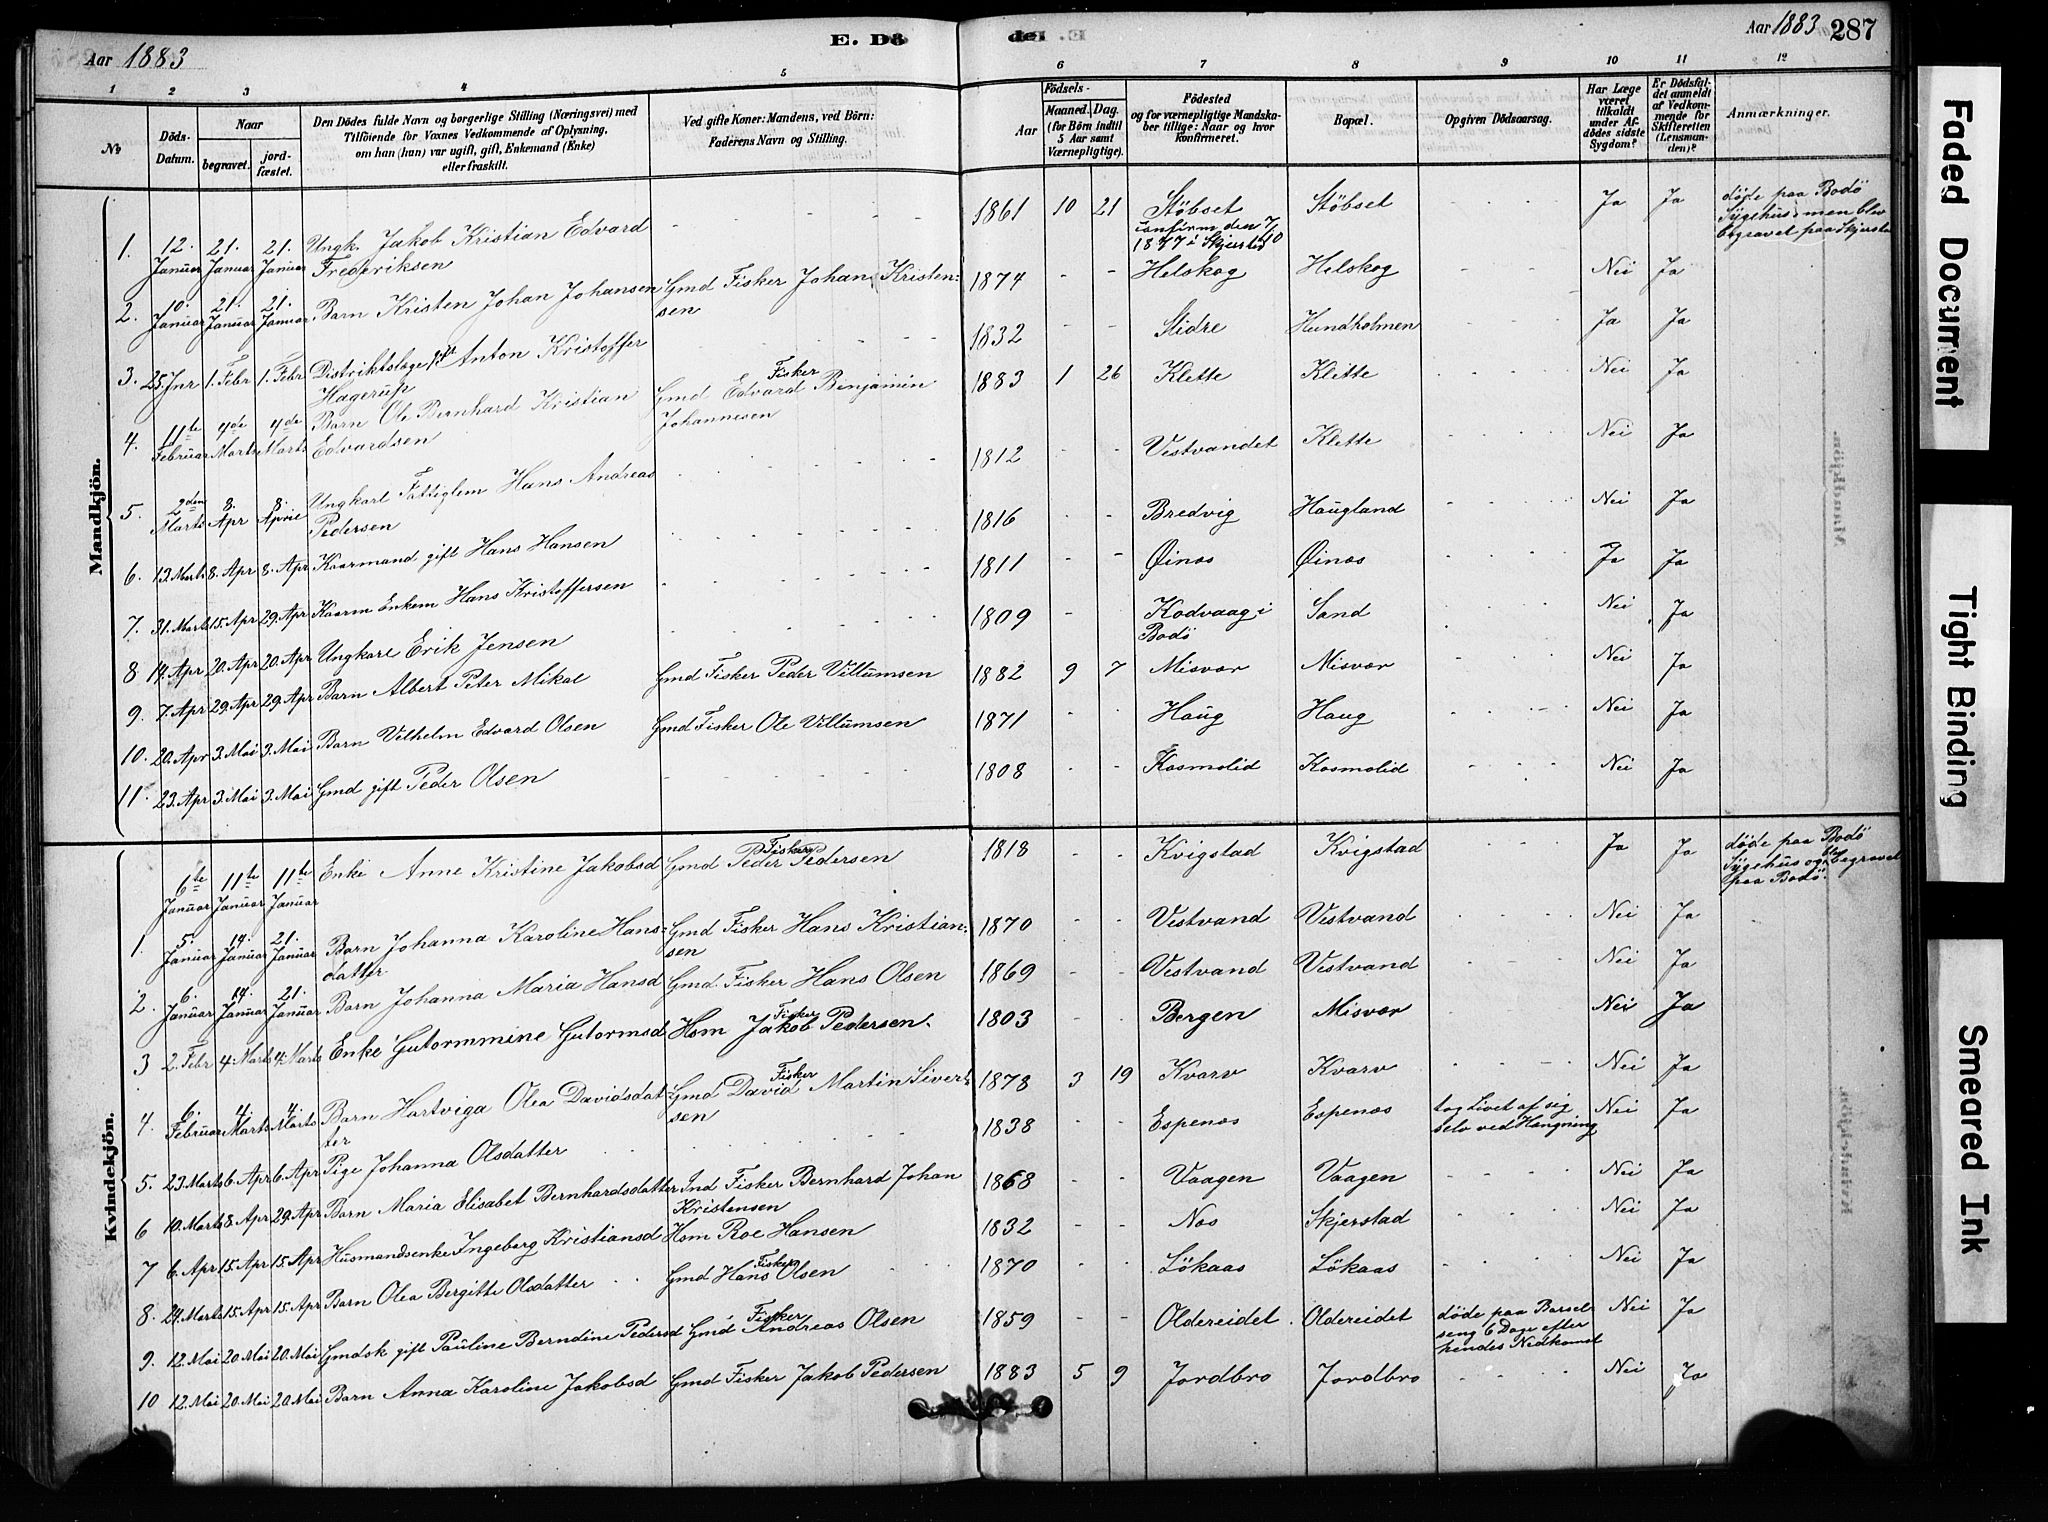 Aar 1883
E. Dö
de. E
Aar 1883 287
1 2 3 4 5 6 7 8 9 10 11 12
No
Döds-Datum.
Naar
begravet.
jord-fæstet.
Den Dödes fulde Navn og borgerlige Stilling (Næringsvei) med
Tilföiende for Voxnes Vedkommende af Oplysning,
om han (hun) var ugift, gift, Enkemand (Enke)
eller fraskilt.
Ved gifte Koner: Mandens, ved Börn:
Faderens Navn og Stilling.
Födsels-
Aar
Maaned. Dag.
(for Börn indtil
5 Aar samt
Værnepligtige).
Födested
og for værnepligtige Mandska-
ber tillige: Naar og hvor
Konfirmeret.
Bopæl.
Opgiven Dödsaarsag.
Har Læge
været
tilkaldt
under Af-
dödes sidste
Sygdom?
Er Dödsfal-
det anmeldt
af Vedkom-
mende for
Skifteretten
(Lensman-
den)?
Anmærkninger.
Mandkjön.
1. 12. Januar 21. Januar 21. Januar Ungk. Jakob Kristian Edvard Frederiksen 1861 10 21 Støbset confirm den 7/10 1877 i Skjerstad Støbset Ja Ja døde paa Bodø Sygehus, men blev begravet paa Skjerstad
2. 10. Januar 21. Januar 21. Januar Barn Kristen Johan Johansen Gmd Fisker Johan Kristen-sen 1874 Helskog Helskog Nei Ja
3. 25 Jnr 1. Febr 1. Febr Distriktslæge gift Anton Kristoffer Hagerup 1832 Slidre Hundholmen Ja Ja
4. 11te Februar 4de Marts 4de Marts Barn Ole Bernhard Kristian Edvardsen Gmd Fisker Edvard Benjamin Johannesen 1883 1 26 Klette Klette Nei Ja
5. 2den Marts 8. Apr 8. Aprie Ungkarl Fattiglem Hans Andreas Pedersen 1812 Vestvandet Klette Nei Ja
6. 13. Marts 8. Apr 8. Apr Kaarmand gift Hans Hansen 1816 Bredvig Haugland Nei Ja
7. 31. Marts 15. Apr 29. Apr Kaarm Enkem Hans Kristoffersen 1811 Øinæs Øinæs Ja Ja
8 14. Apr 20. Apr 20. Apr Ungkarl Erik Jensen 1809 Kodvaag i Bodø Sand Nei Ja
9. 7. Apr 29. Apr 29. Apr Barn Albert Peter Mikal Gmd Fisker Peder Villumsen 1882 9 7 Misvær Misvær Nei Ja
10. 20. Apr 3. Mai 3. Mai Barn Vilhelm Edvard Olsen Gmd Fisker Ole Villumsen 1871 Haug Haug Nei Ja
11. 23. Apr 3. Mai 3. Mai Gmd gift Peder Olsen 1808 Kosmolid Kosmolid Nei Ja
Kvindekjön.
6te Januar 11te Januar 11te Januar Enke Anne Kristine Jakobsd Gmd Fisker Peder Pedersen 1818 Kvigstad Kvigstad Ja Ja døde paa Bodø Sygehus og blev begravet paa Bodø.
1. 5. Januar 14. Januar 21. Januar Barn Johanna Karoline Hans-datter Gmd Fisker Hans Kristian-sen 1870 Vestvand Vestvand Nei Ja
2. 6. Januar 14. Januar 21. Januar Barn Johanna Maria Hansd Gmd Fisker Hans Olsen 1869 Vestvand Vestvand Nei Ja
3 2. Febr 4. Marts 4. Marts Enke Gutormmine Gutormsd Hsm Fisker Jakob Pedersen. 1803 Bergen Misvær Nei Ja
4. 6. Februar 4. Marts 4. Marts Barn Hartviga Olea Davidsdat-ter Gmd Fisker David Martin Sivert-sen 1878 3 19 Kvarv Kvarv Nei Ja
5. 23. Marts 6. Apr 6. Apr Pige Johanna Olsdatter 1838 Espenæs Espenæs tog Livet af sig selv ved Hængning Nei Ja
6 10. Marts 8. Apr 29. Apr Barn Maria Elisabet Bernhardsdatter Ind Fisker Bernhard Johan Kristensen 1868 Vaagen Vaagen Nei Ja
7 6. Apr 15. Apr 15. Apr Husmandsenke Ingeborg Kristiansd Hsm Roe Hansen 1832 Næs Skjerstad Nei Ja
8. 24. Marts 15. Apr 15. Apr Barn Olea Bergitte Olsdatter Gmd Fisker Hans Olsen 1870 Løkaas Løkaas Nei Ja
9. 12. Mai 20. Mai 20. Mai Gmdsk gift Pauline Berndine Pedersd Gmd Fisker Andreas Olsen 1859 Oldereidet Oldereidet døde paa Barsel seng 6 Dage efter hendes Nedkomst Nei Ja
10 12. Mai 20. Mai 20. Mai Barn Anna Karoline Jakobsd Gmd Fisker Jakob Pedersen 1883 5 9 Jordbro Jordbro Nei Ja
Faded Document
Tight Binding
Smeared Ink